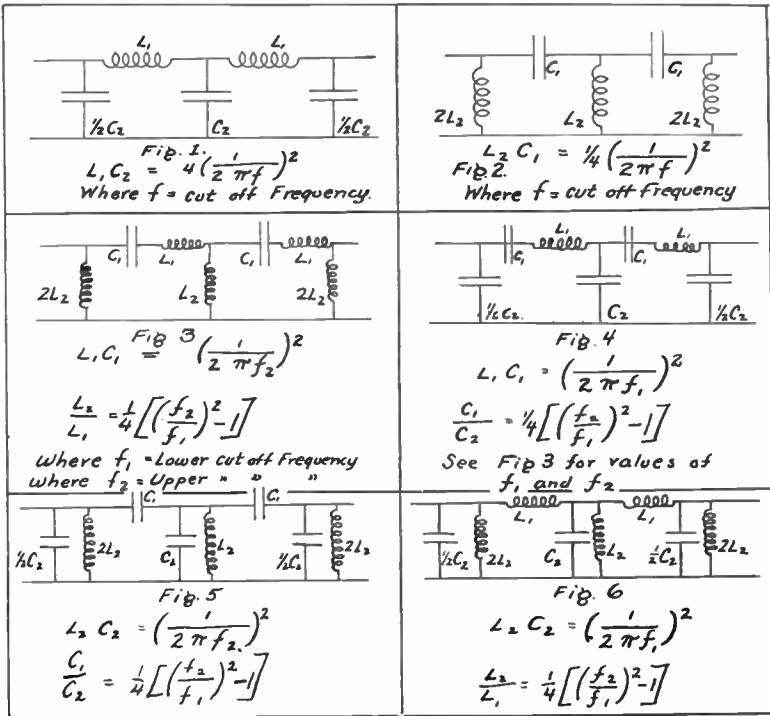 L₁ L₁
½C₂ C₂ ½C₂
Fig. 1.
L₁C₂ = 4(1/2πf)²
Where f = cut off Frequency.
C₁ C₁
2L₂ L₂ 2L₂
L₂C₁ = ¼(1/2πf)²
Fig. 2.
Where f = cut off Frequency
C₁ L₁ C₁ L₁
2L₂ L₂ 2L₂
Fig 3
L₁C₁ = (1/2πf₂)²
L₂/L₁ = ¼[(f₂/f₁)²-1]
Where f₁ = Lower cut off Frequency
where f₂ = Upper " " "
C₁ L₁ C₁ L₁
C₂ ½C₂
Fig. 4
L₁C₁ = (1/2πf₁)²
C₁/C₂ = ¼[(f₂/f₁)²-1]
See Fig 3 for values of
f₁ and f₂
C₁ C₁
½C₂ 2L₂ C₂ L₂ ½C₂ 2L₂
Fig. 5
L₂C₂ = (1/2πf₂)²
C₁/C₂ = ¼[(f₂/f₁)²-1]
L₁ L₁
½C₂ 2L₂ C₂ L₂ ½C₂ 2L₂
Fig. 6
L₂C₂ = (1/2πf₁)²
L₂/L₁ = ¼[(f₂/f₁)²-1]